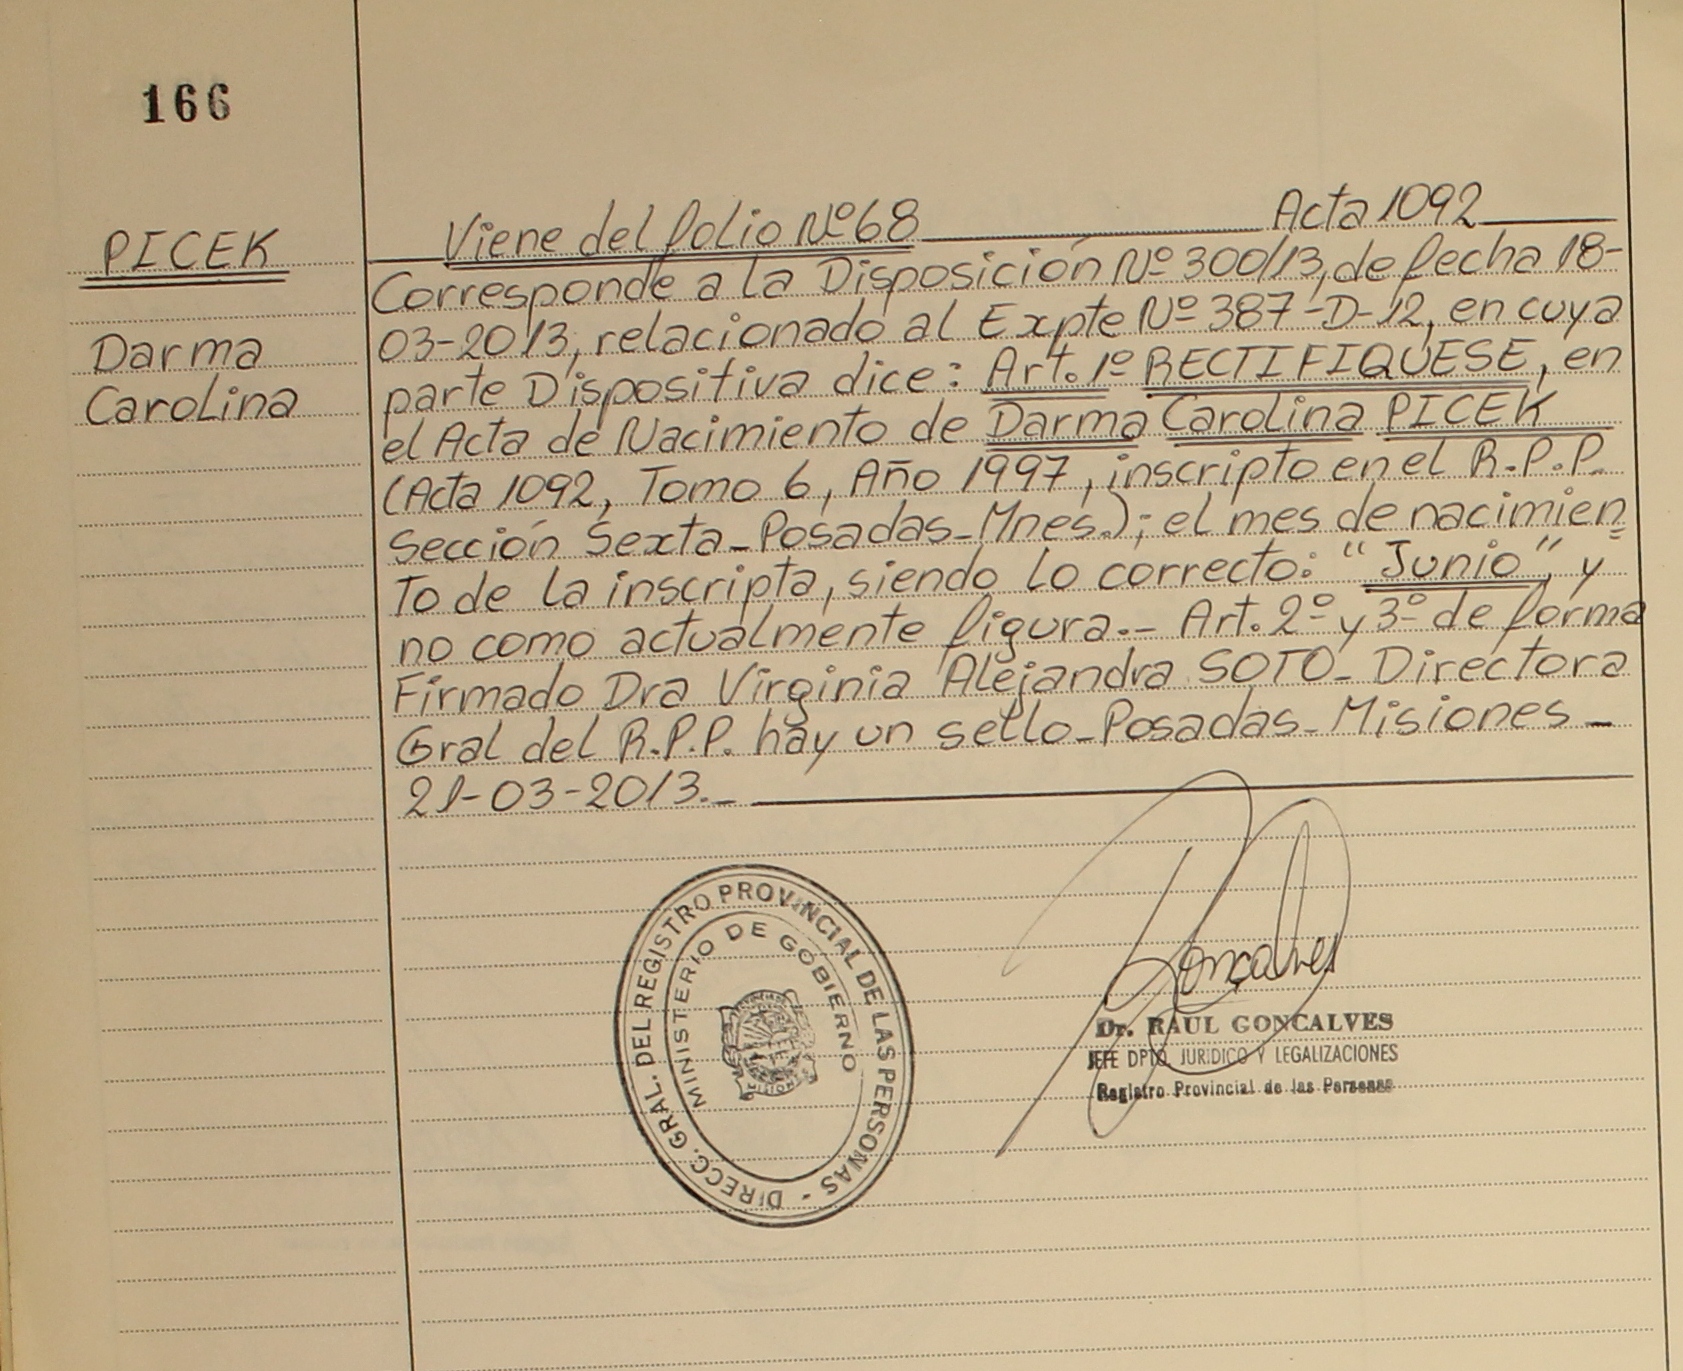 166
PICEK
Darma
Carolina
Viene del folio Nº68 Acta 1092
Corresponde a la Disposición Nº 300/13, de fecha 18-
03-2013, relacionado al Expte Nº 387-D-12, en cuya
parte Dispositiva dice: Art. 1º RECTIFIQUESE, en
el Acta de Nacimiento de Darma Carolina PICEK
(Acta 1092, Tomo 6, Año 1997, inscripto en el R.P.P.
Sección Sexta_Posadas_Mnes.); el mes de nacimien=
To de la inscripta, siendo lo correcto: "Junio", y
no como actualmente figura.- Art. 2º y 3º de forma
Firmado Dra Virginia Alejandra SOTO_ Directora
Gral del R.P.P. hay un sello_Posadas_Misiones_
21-03-2013._
DIRECC. GRAL. DEL REGISTRO PROVINCIAL DE LAS PERSONAS -
MINISTERIO DE GOBIERNO
Goncalves
Dr. RAUL GONCALVES
JEFE DPTO. JURIDICO Y LEGALIZACIONES
Registro Provincial de las Personas